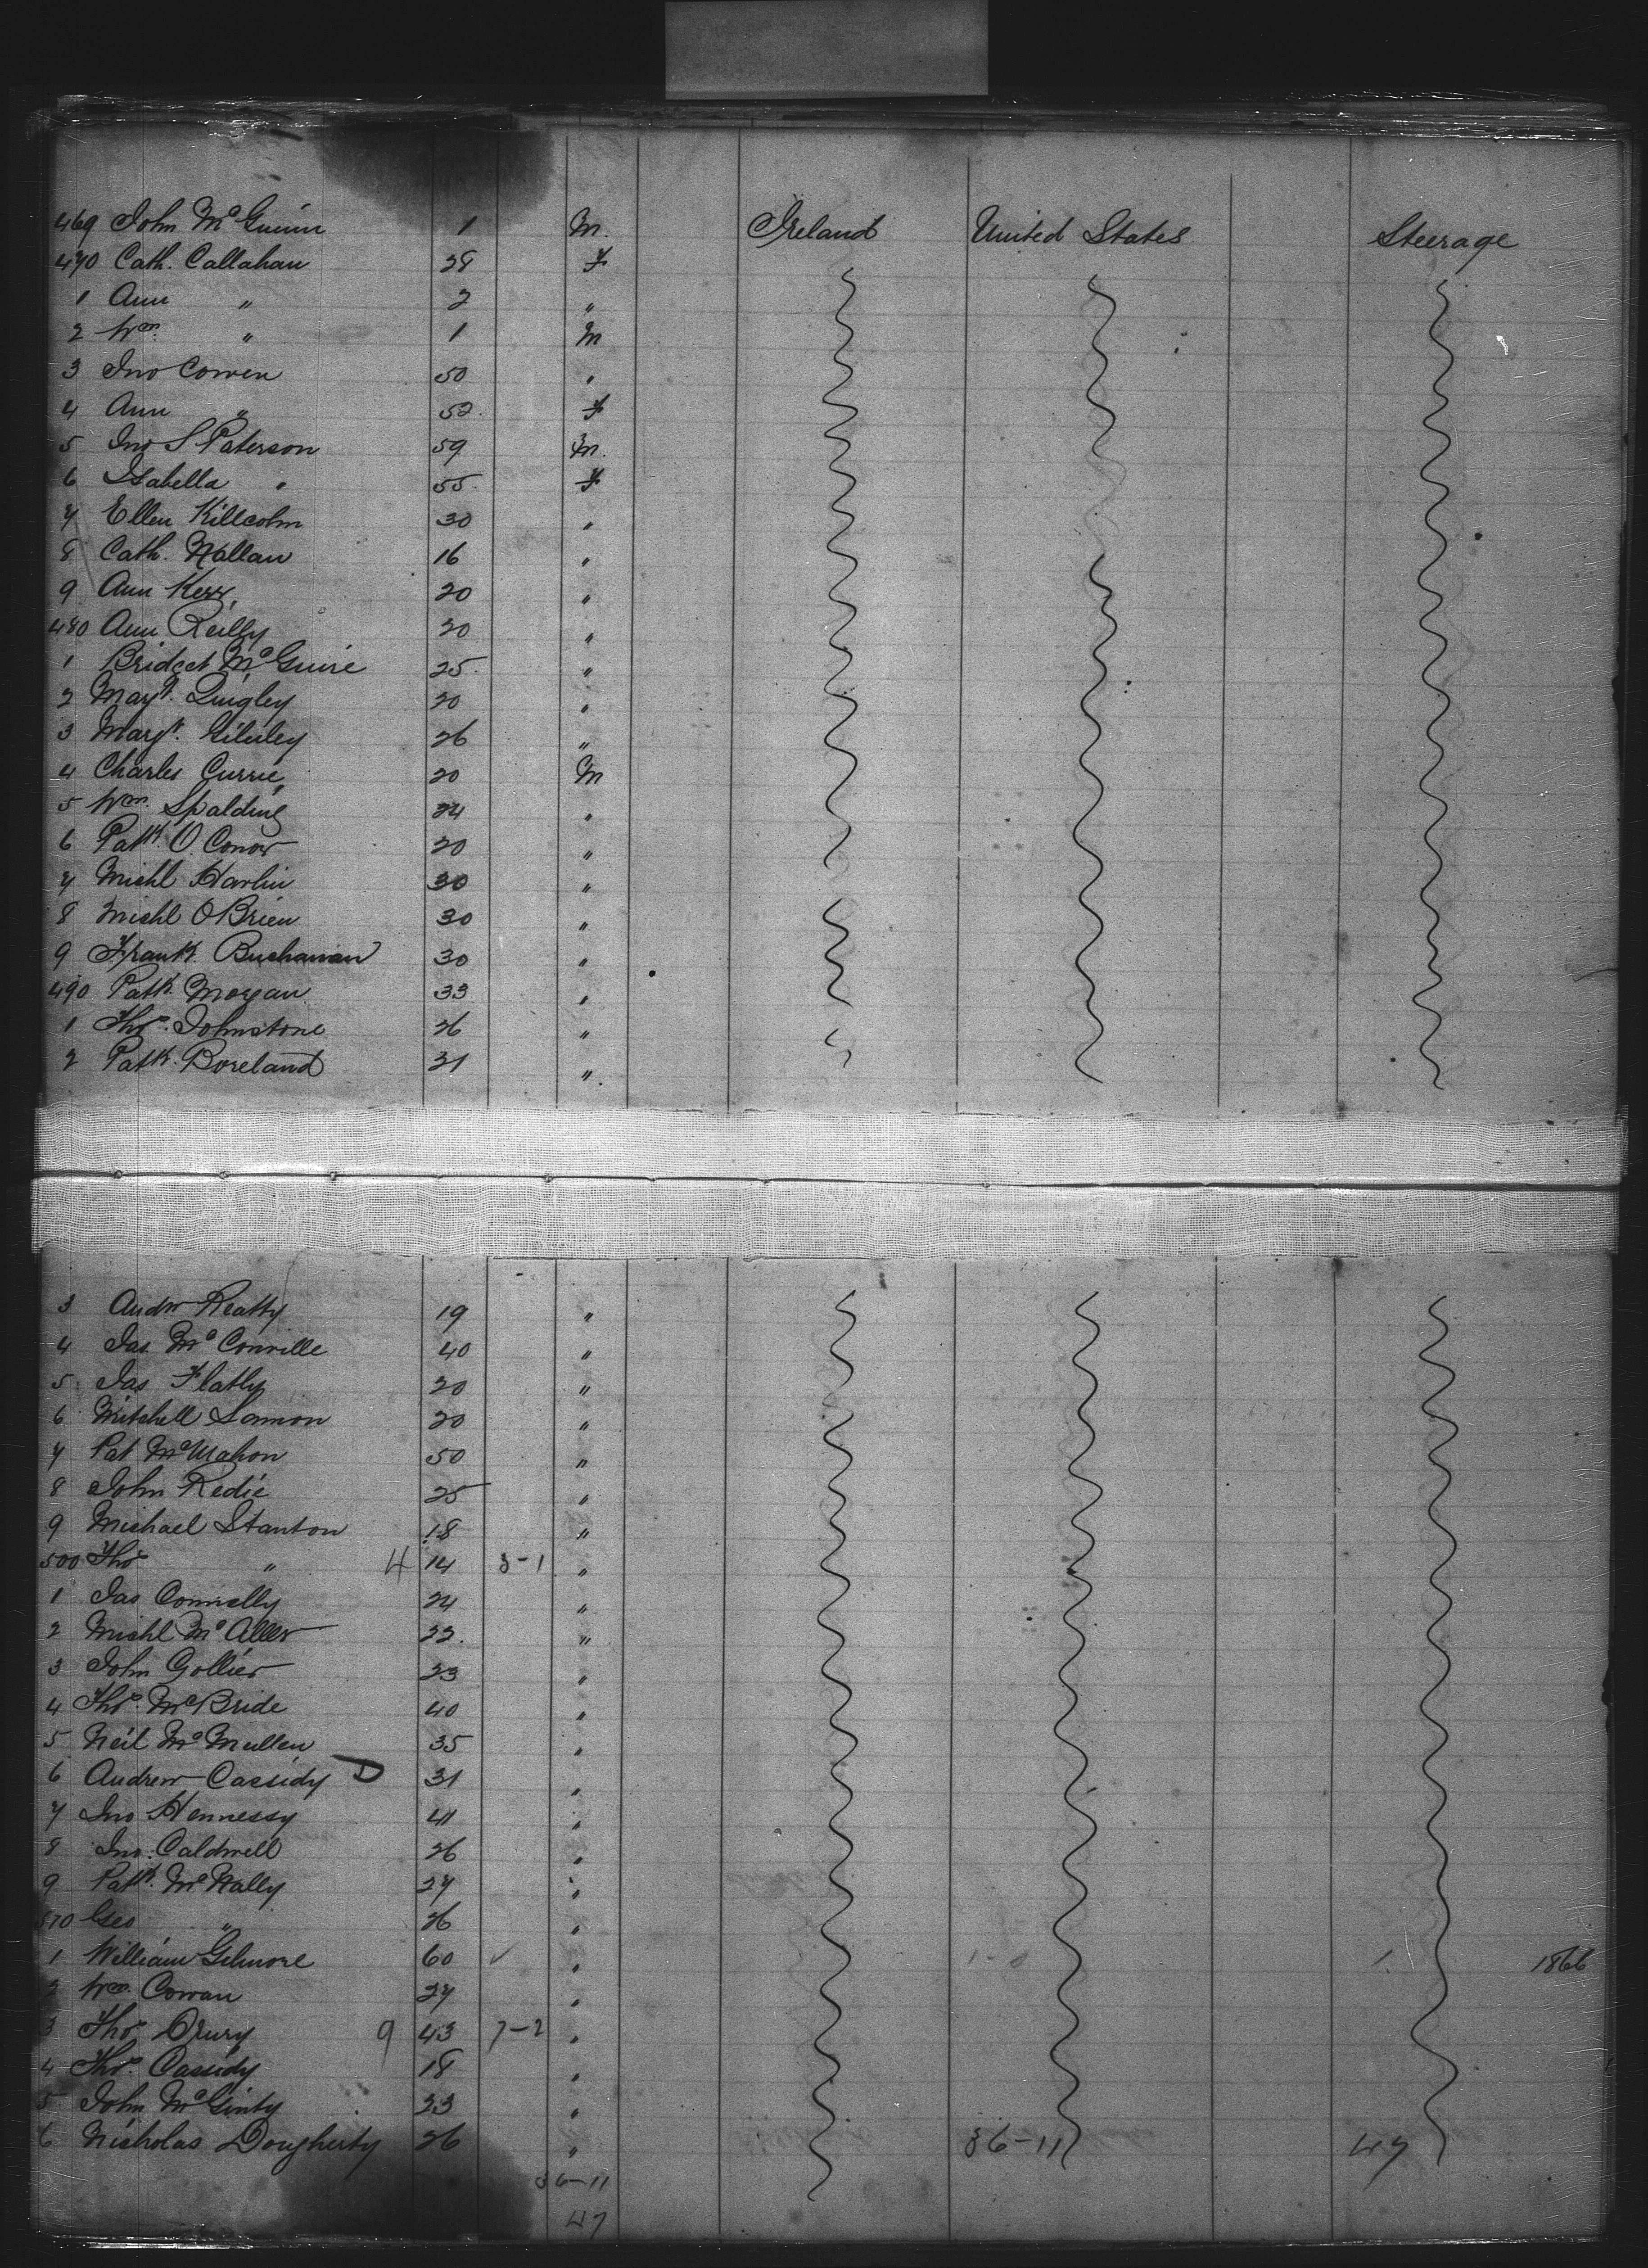 469 John McGuinn 1 M. Ireland United States Steerage
470 Cath. Callahan 28 F
1 Ann " 2 "
2 Wm. " 1 M
3 Jno Cowen 50 "
4 Ann " 52. F
5 Jno S Paterson 59 M.
6 Isabella " 55. F
7 Ellen Killcolm 30 "
8 Cath. Nallan 16 "
9 Ann Kerr 20 "
480 Ann Reilly 20 "
1 Bridget McGuire 25. "
2 Magt. Quigley 20 "
3 Margt. 26 "
4 Charles Currie 20 M
5 Wm. Spalding 24 "
6 Patk O Conor 20 "
7 Michl Harlin 30 "
8 Michl OBrien 30 "
9 Frank Buchanan 30 "
490 Patk. Morgan 33 "
1 Thos. Johnstone 26 "
2 Patk. Boreland 31 "
3 Andw Reatty 19 "
4 Jas McConville 40 "
5 Jas Flatly 20 "
6 Mitchell Lamon 20 "
7 Pat McMahon 50 "
8 John Redie 25 "
9 Michael Stanton 18 "
500 Thos " 4 14 3-1 "
1 Jas Connelly 24 "
2 Michl McAller 22. "
3 John Gollier 23 "
4 Thos. McBride 40 "
5 Neil McMullen 35 "
6 Andrew Cassidy D 31 "
7 Jno Hennessy 41 "
8 Jno. Caldwell 26 "
9 Patk. McNally 27 "
510 Geo " 26 "
1 William Gilmore 60 ✓ " 1-0 1. 1866
2 Wm. Cowan 27 "
3 Thos Drury 9 43 7-2 "
4 Thos. Cassidy 18 "
5 John McGinty 23 "
6 Nicholas Dougherty 26 " 36-11 47
36-11
47